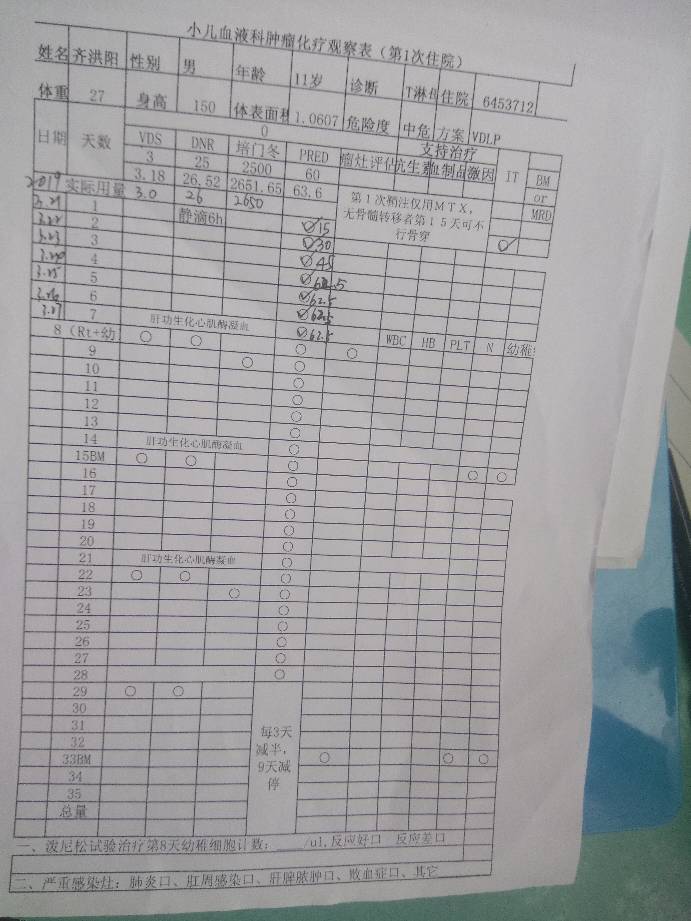 小儿血液科肿瘤化疗观察表（第1次住院）
姓名 齐洪阳 性别 男 年龄 11岁 诊断 T淋 住院 6453712
体重 27 身高 150 体表面积 1.0607 危险度 中危 方案 VDLP
日期 天数 0 支持治疗 IT BM or MRD
VDS DNR 培门冬 PRED 瘤灶评估 抗生素 血制品 激因
3 25 2500 60
3.18 26.52 2651.65 63.6
2019 实际用量 3.0 26 2650
第1次鞘注仅用MTX，
无骨髓转移者第15天可不
行骨穿
3.21 1 静滴6h 15
3.22 2 30
3.23 3 45
3.24 4
3.25 5 62.5
3.26 6 62.5
3.27 7 肝功生化心肌酶凝血 62.5
8（Rt+幼 WBC HB PLT N 幼稚
9
10
11
12
13
14 肝功生化心肌酶凝血
15BM
16
17
18
19
20
21 肝功生化心肌酶凝血
22
23
24
25
26
27
28
29
30
31
32
33BM
34
35
总量
每3天
减半，
9天减
停
一、泼尼松试验治疗第8天幼稚细胞计数：____/ul,反应好口 反应差口
二、严重感染灶：肺炎口、肛周感染口、肝脾脓肿口、败血症口、其它